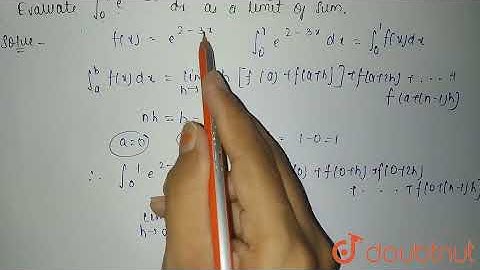 Evaluate ∫₀¹ e dx as a limit of Sum.
Solve - f(x) = e^{2-3x} ∫₀¹ e^{2-3x} dx = ∫₀¹ f(x)dx
∫ₐᵇ f(x) dx = lim h→ [ f(a) + f(a+h) ] + f(a+2h) + .... +
f(a+(n-1)h)
nh = b-
a=0 = 1-0=1
∴ ∫₀¹ e^{2- f(0+h)+f(0+2h)
+ ..... + f(0+(n-1)h)
lim h→0
doubtnut